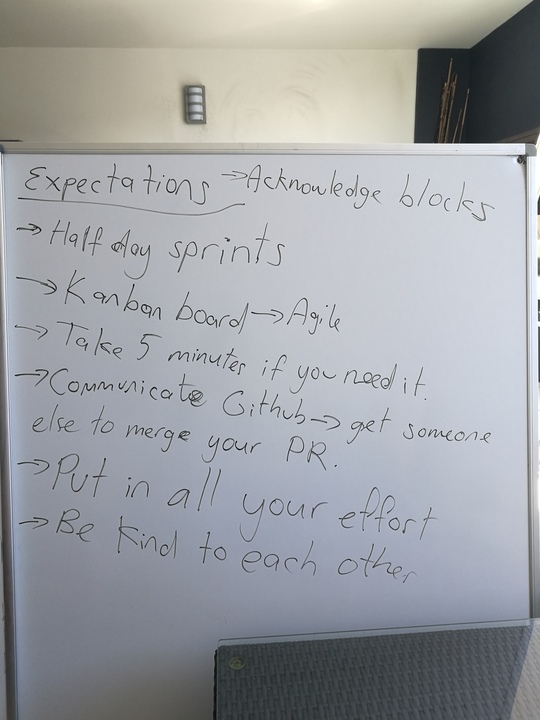 Expectations → Acknowledge blocks
→ Half day sprints
→ Kanban board → Agile
→ Take 5 minutes if you need it.
→ Communicate Github → get someone
else to merge your PR.
→ Put in all your effort
→ Be kind to each other